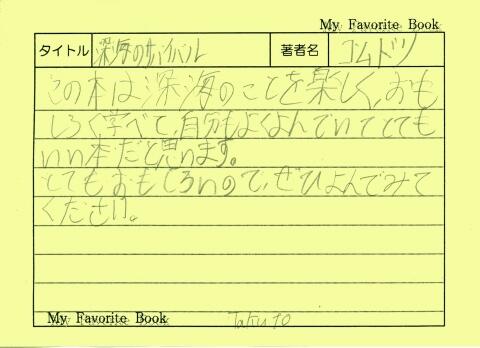 My Favorite Book
タイトル 深海のサバイバル 著者名 ゴムドリ
この本は深海のことを楽しく、おも
しろく学べて、自分もよくよんでいてとても
いい本だと思います。
とてもおもしろいので、ぜひよんでみて
ください。
My Favorite Book Takuto